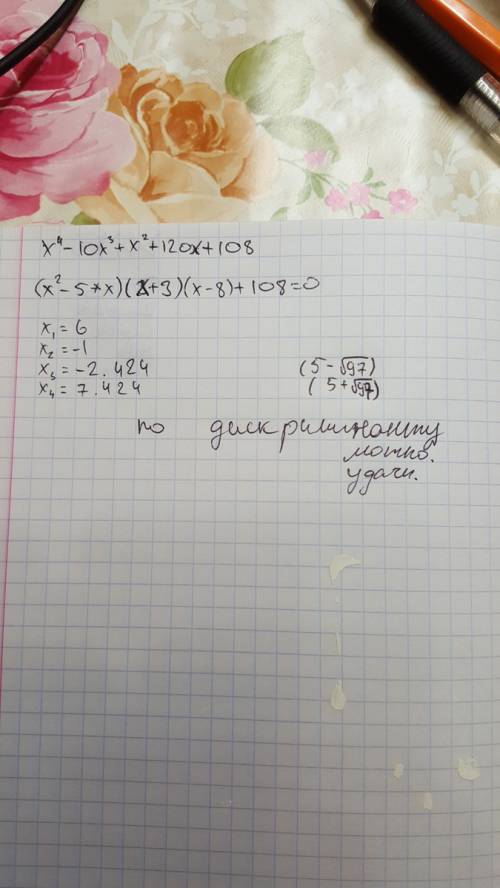 x⁴-10x³+x²+120x+108
(x²-5*x)(x+3)(x-8)+108=0
x₁=6
x₂=-1
x₃=-2.424 (5-√97)
x₄=7.424 (5+√97)
по дискриминанту
можно.
удачи.